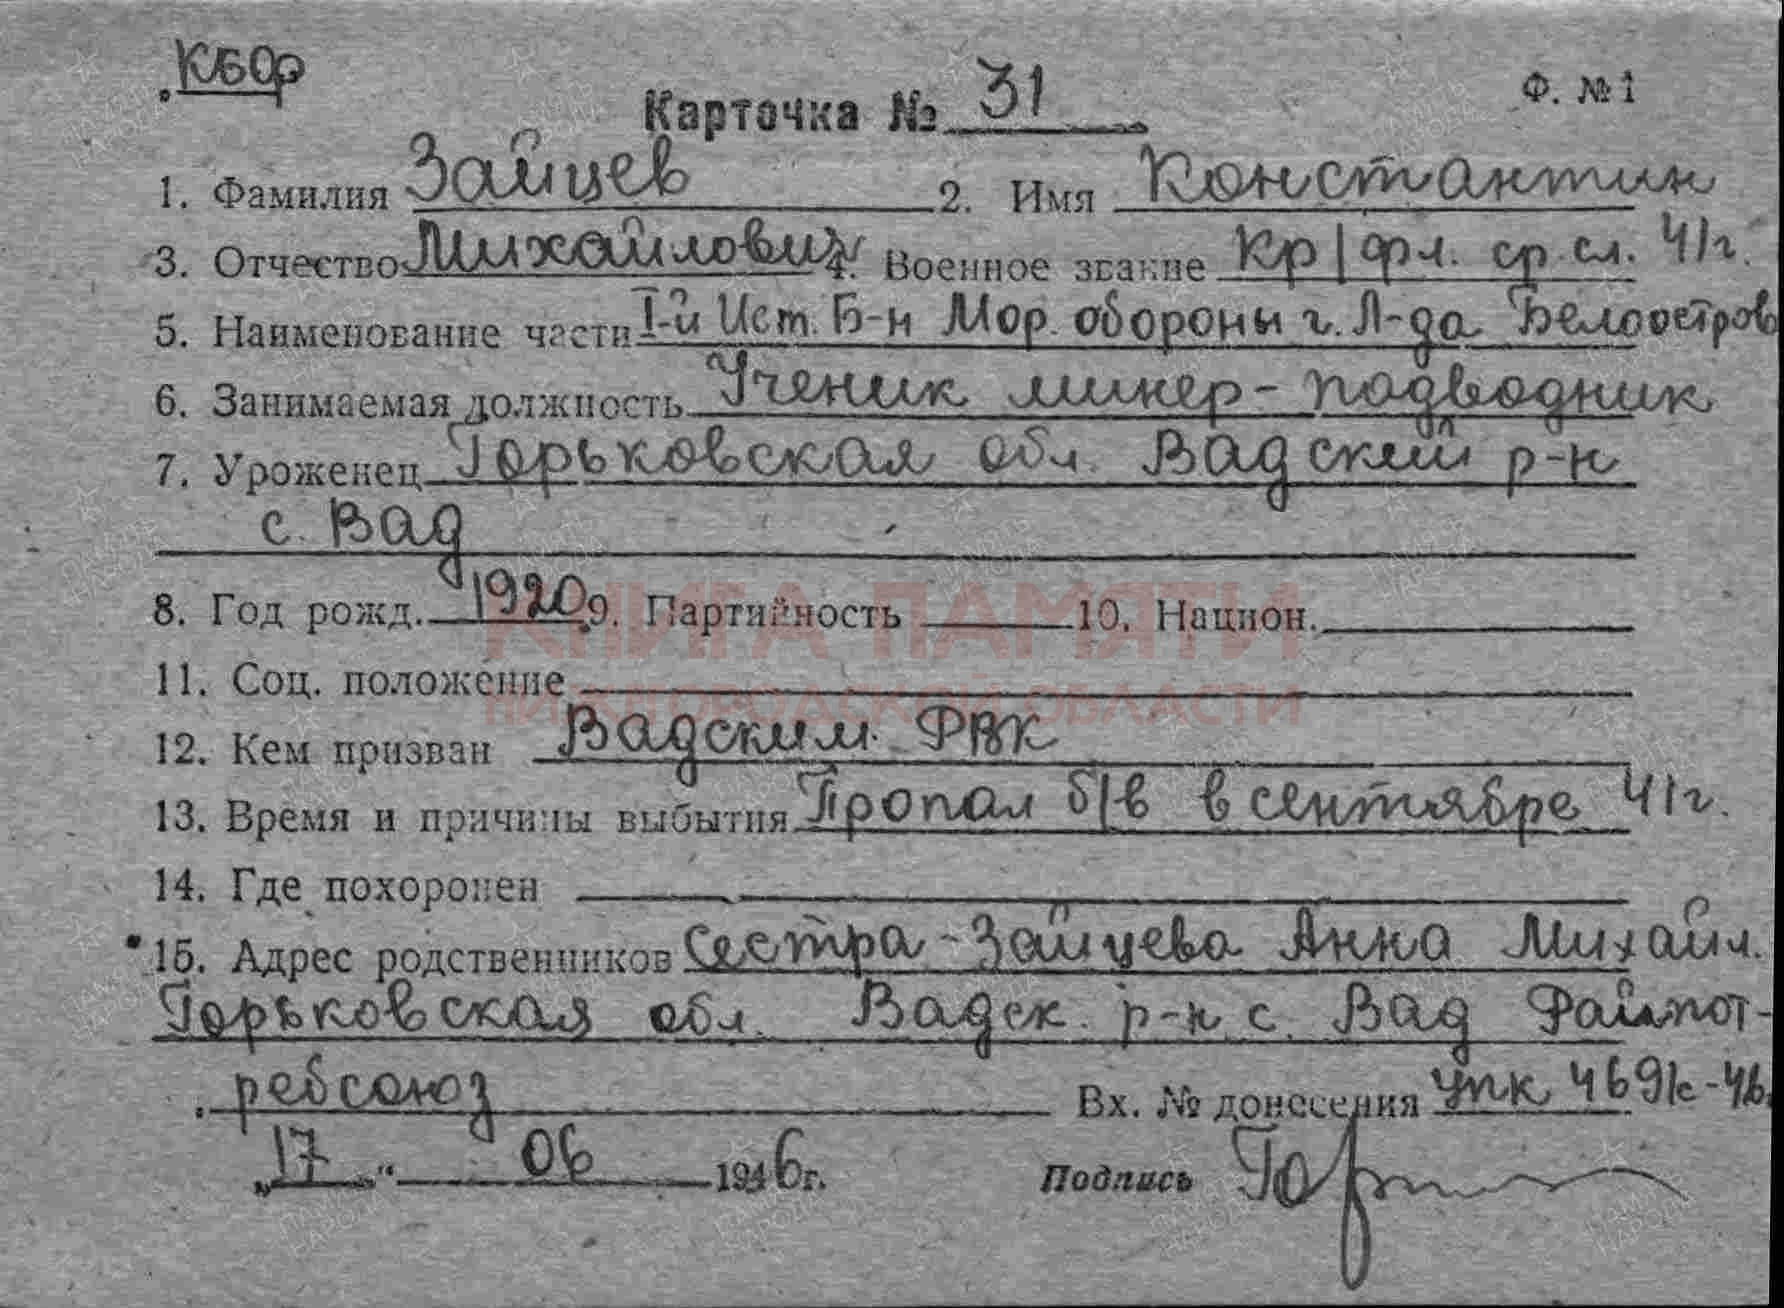 КБФ
Карточка № 31 Ф. № 1
1. Фамилия Зайцев 2. Имя Константин
3. Отчество Михайлович 4. Военное звание кр/фл. ср. сл. 41г.
5. Наименование части I-й Ист. Б-н Мор. обороны г. Л-да Белоостров
6. Занимаемая должность Ученик минер-подводник
7. Уроженец Горьковская обл. Вадский р-н
с. Вад
8. Год рожд. 1920 9. Партийность 10. Национ.
КНИГА ПАМЯТИ
11. Соц. положение
НИЖЕГОРОДСКОЙ ОБЛАСТИ
12. Кем призван Вадским РВК
13. Время и причины выбытия Пропал б/в в сентябре 41г.
14. Где похоронен
15. Адрес родственников Сестра - Зайцева Анна Михайл.
Горьковская обл. Вадск. р-н с. Вад Райпот-
ребсоюз Вх. № донесения упк 4691с-46
„17“ 06 1946г. Подпись